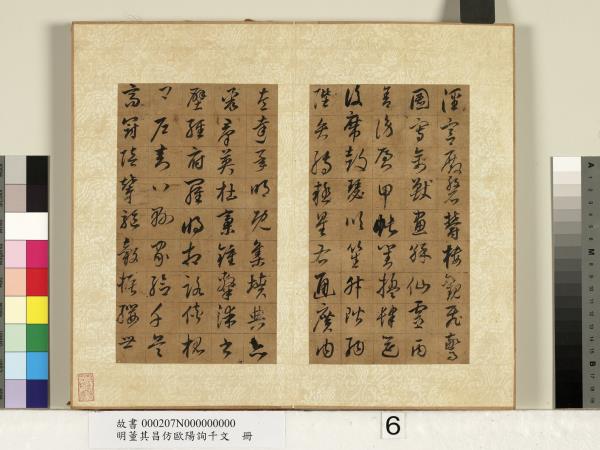 涇宮殿盤鬱樓觀飛驚
圖寫禽獸畫綵仙靈丙
舍傍啟甲帳對楹肆筵
設席鼓瑟吹笙升階納
陛弁轉疑星右通廣內
左達承明既集墳典亦
聚群英杜稾鍾隸漆書
壁經府羅將相路俠槐
卿戶封八縣家給千兵
高冠陪輦驅轂振纓世
故書 000207N000000000
明董其昌仿歐陽詢千文 冊
6